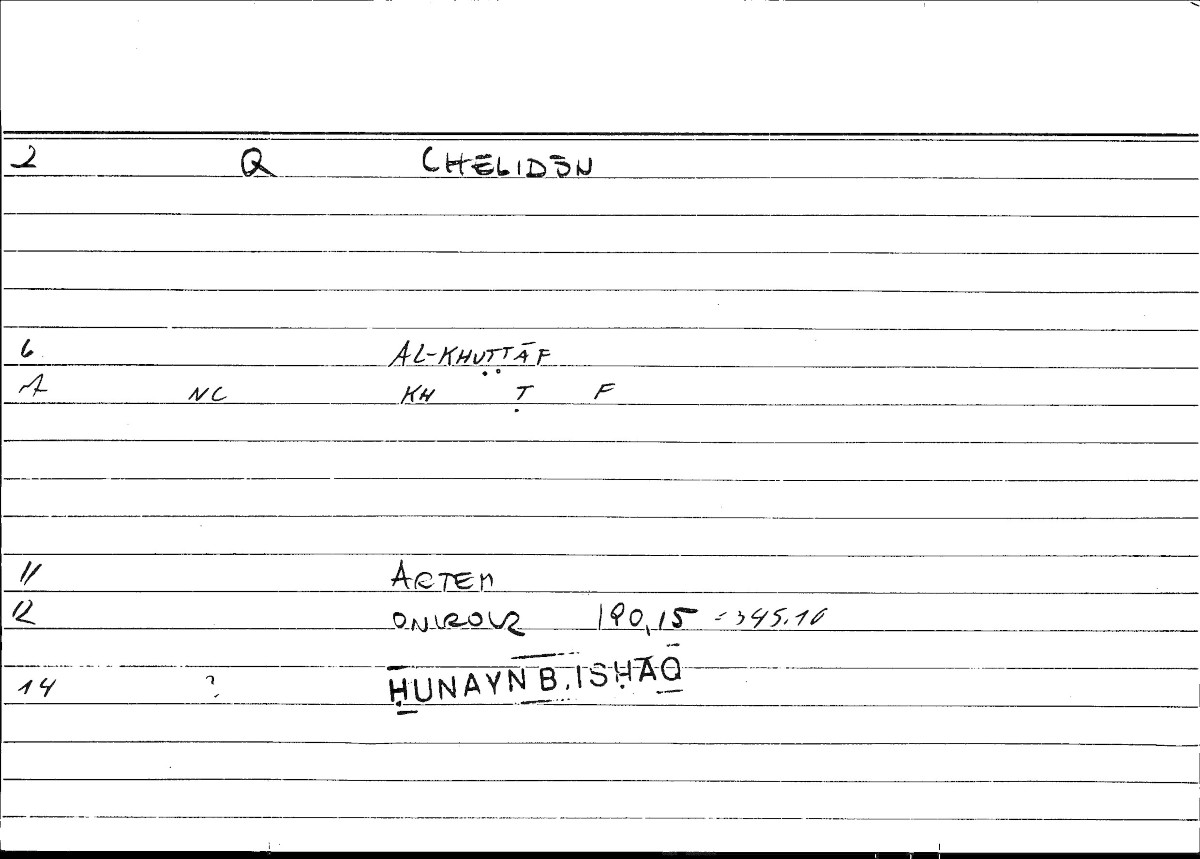 2 Q CHĒLIDŌN
6 AL-KHUṬṬĀF
NC KH Ṭ F
11 ARTEM
12 ONIROCR 190,15 = 345.10
14 ? ḤUNAYN B. ISḤĀQ